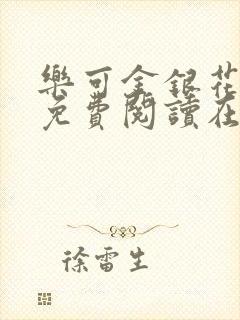 樂可金銀花
免費閱讀在
徐雷生